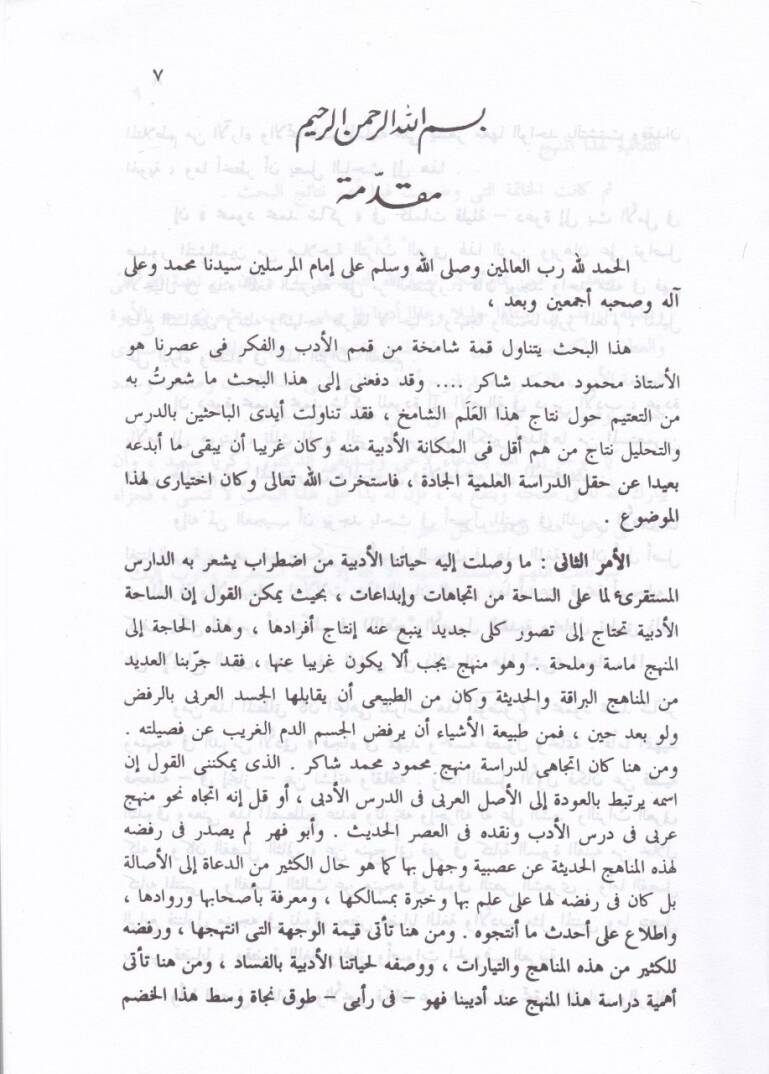 ٧
بسم الله الرحمن الرحيم
مقدّمة
الحمد لله رب العالمين وصلى الله وسلم على إمام المرسلين سيدنا محمد وعلى
آله وصحبه أجمعين وبعد ،
هذا البحث يتناول قمة شامخة من قمم الأدب والفكر فى عصرنا هو
الأستاذ محمود محمد شاكر .... وقد دفعنى إلى هذا البحث ما شعرتُ به
من التعتيم حول نتاج هذا العَلَم الشامخ ، فقد تناولت أيدى الباحثين بالدرس
والتحليل نتاج من هم أقل فى المكانة الأدبية منه وكان غريبا أن يبقى ما أبدعه
بعيدا عن حقل الدراسة العلمية الجادة ، فاستخرت الله تعالى وكان اختيارى لهذا
الموضوع .
الأمر الثانى : ما وصلت إليه حياتنا الأدبية من اضطراب يشعر به الدارس
المستقرئ لما على الساحة من اتجاهات وإبداعات ، بحيث يمكن القول إن الساحة
الأدبية تحتاج إلى تصور كلى جديد ينبع عنه إنتاج أفرادها ، وهذه الحاجة إلى
المنهج ماسة وملحة . وهو منهج يجب ألا يكون غريبا عنها ، فقد جرّبنا العديد
من المناهج البراقة والحديثة وكان من الطبيعى أن يقابلها الجسد العربى بالرفض
ولو بعد حين ، فمن طبيعة الأشياء أن يرفض الجسم الدم الغريب عن فصيلته .
ومن هنا كان اتجاهى لدراسة منهج محمود محمد شاكر . الذى يمكننى القول إن
اسمه يرتبط بالعودة إلى الأصل العربى فى الدرس الأدبى ، أو قل إنه اتجاه نحو منهج
عربى فى درس الأدب ونقده فى العصر الحديث . وأبو فهر لم يصدر فى رفضه
لهذه المناهج الحديثة عن عصبية وجهل بها كما هو حال الكثير من الدعاة إلى الأصالة
بل كان فى رفضه لها على علم بها وخبرة بمسالكها ، ومعرفة بأصحابها وروادها ،
واطلاع على أحدث ما أنتجوه . ومن هنا تأتى قيمة الوجهة التى انتهجها ، ورفضه
للكثير من هذه المناهج والتيارات ، ووصفه لحياتنا الأدبية بالفساد ، ومن هنا تأتى
أهمية دراسة هذا المنهج عند أديبنا فهو – فى رأيى – طوق نجاة وسط هذا الخضم